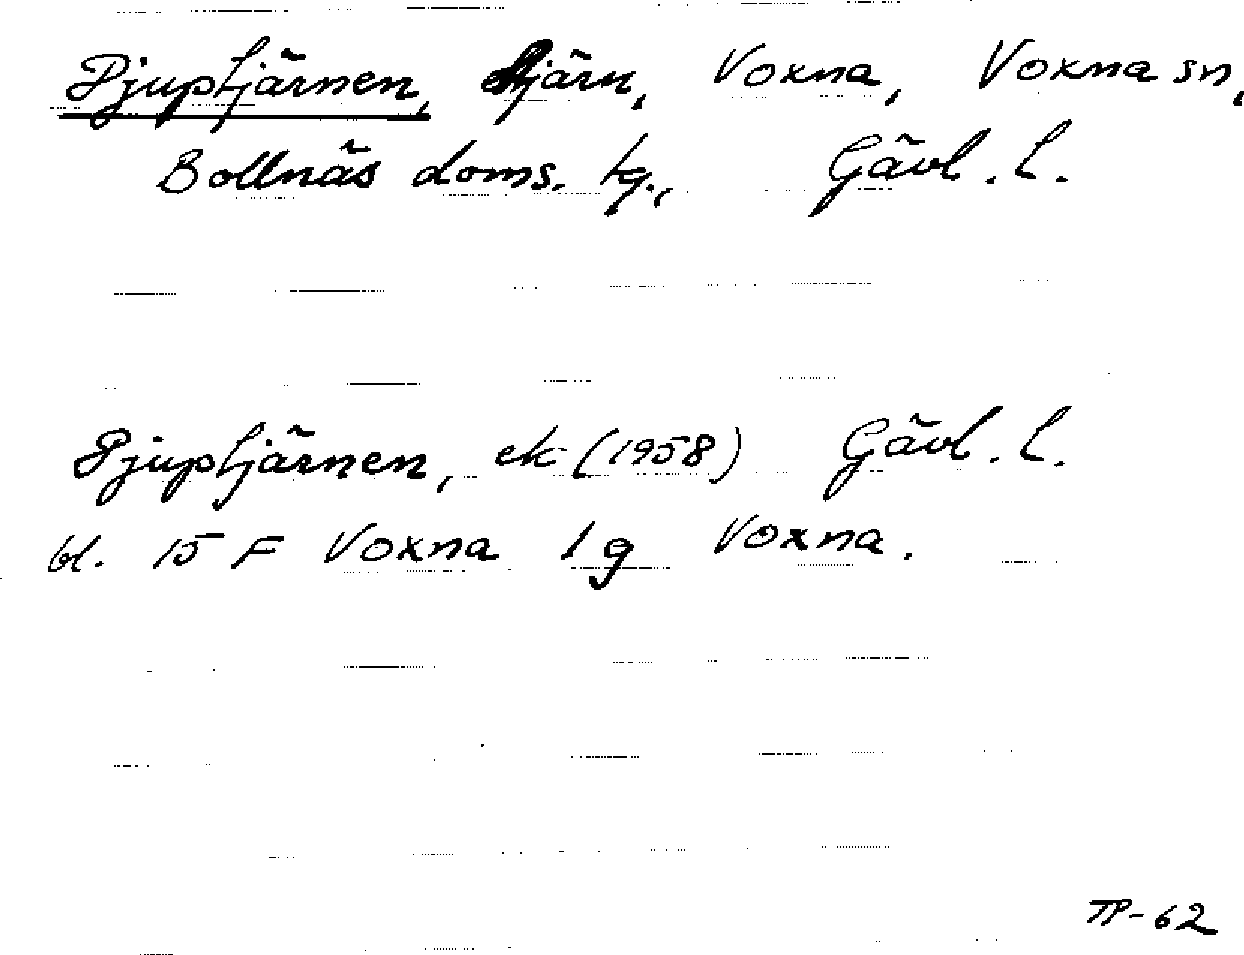 Djuptjärnen, tjärn, Voxna, Voxna sn,
Bollnäs doms. tg., Gävl. l.
Djuptjärnen, ek (1958) Gävl. l.
bl. 15 F Voxna 1 g Voxna.
TP-62